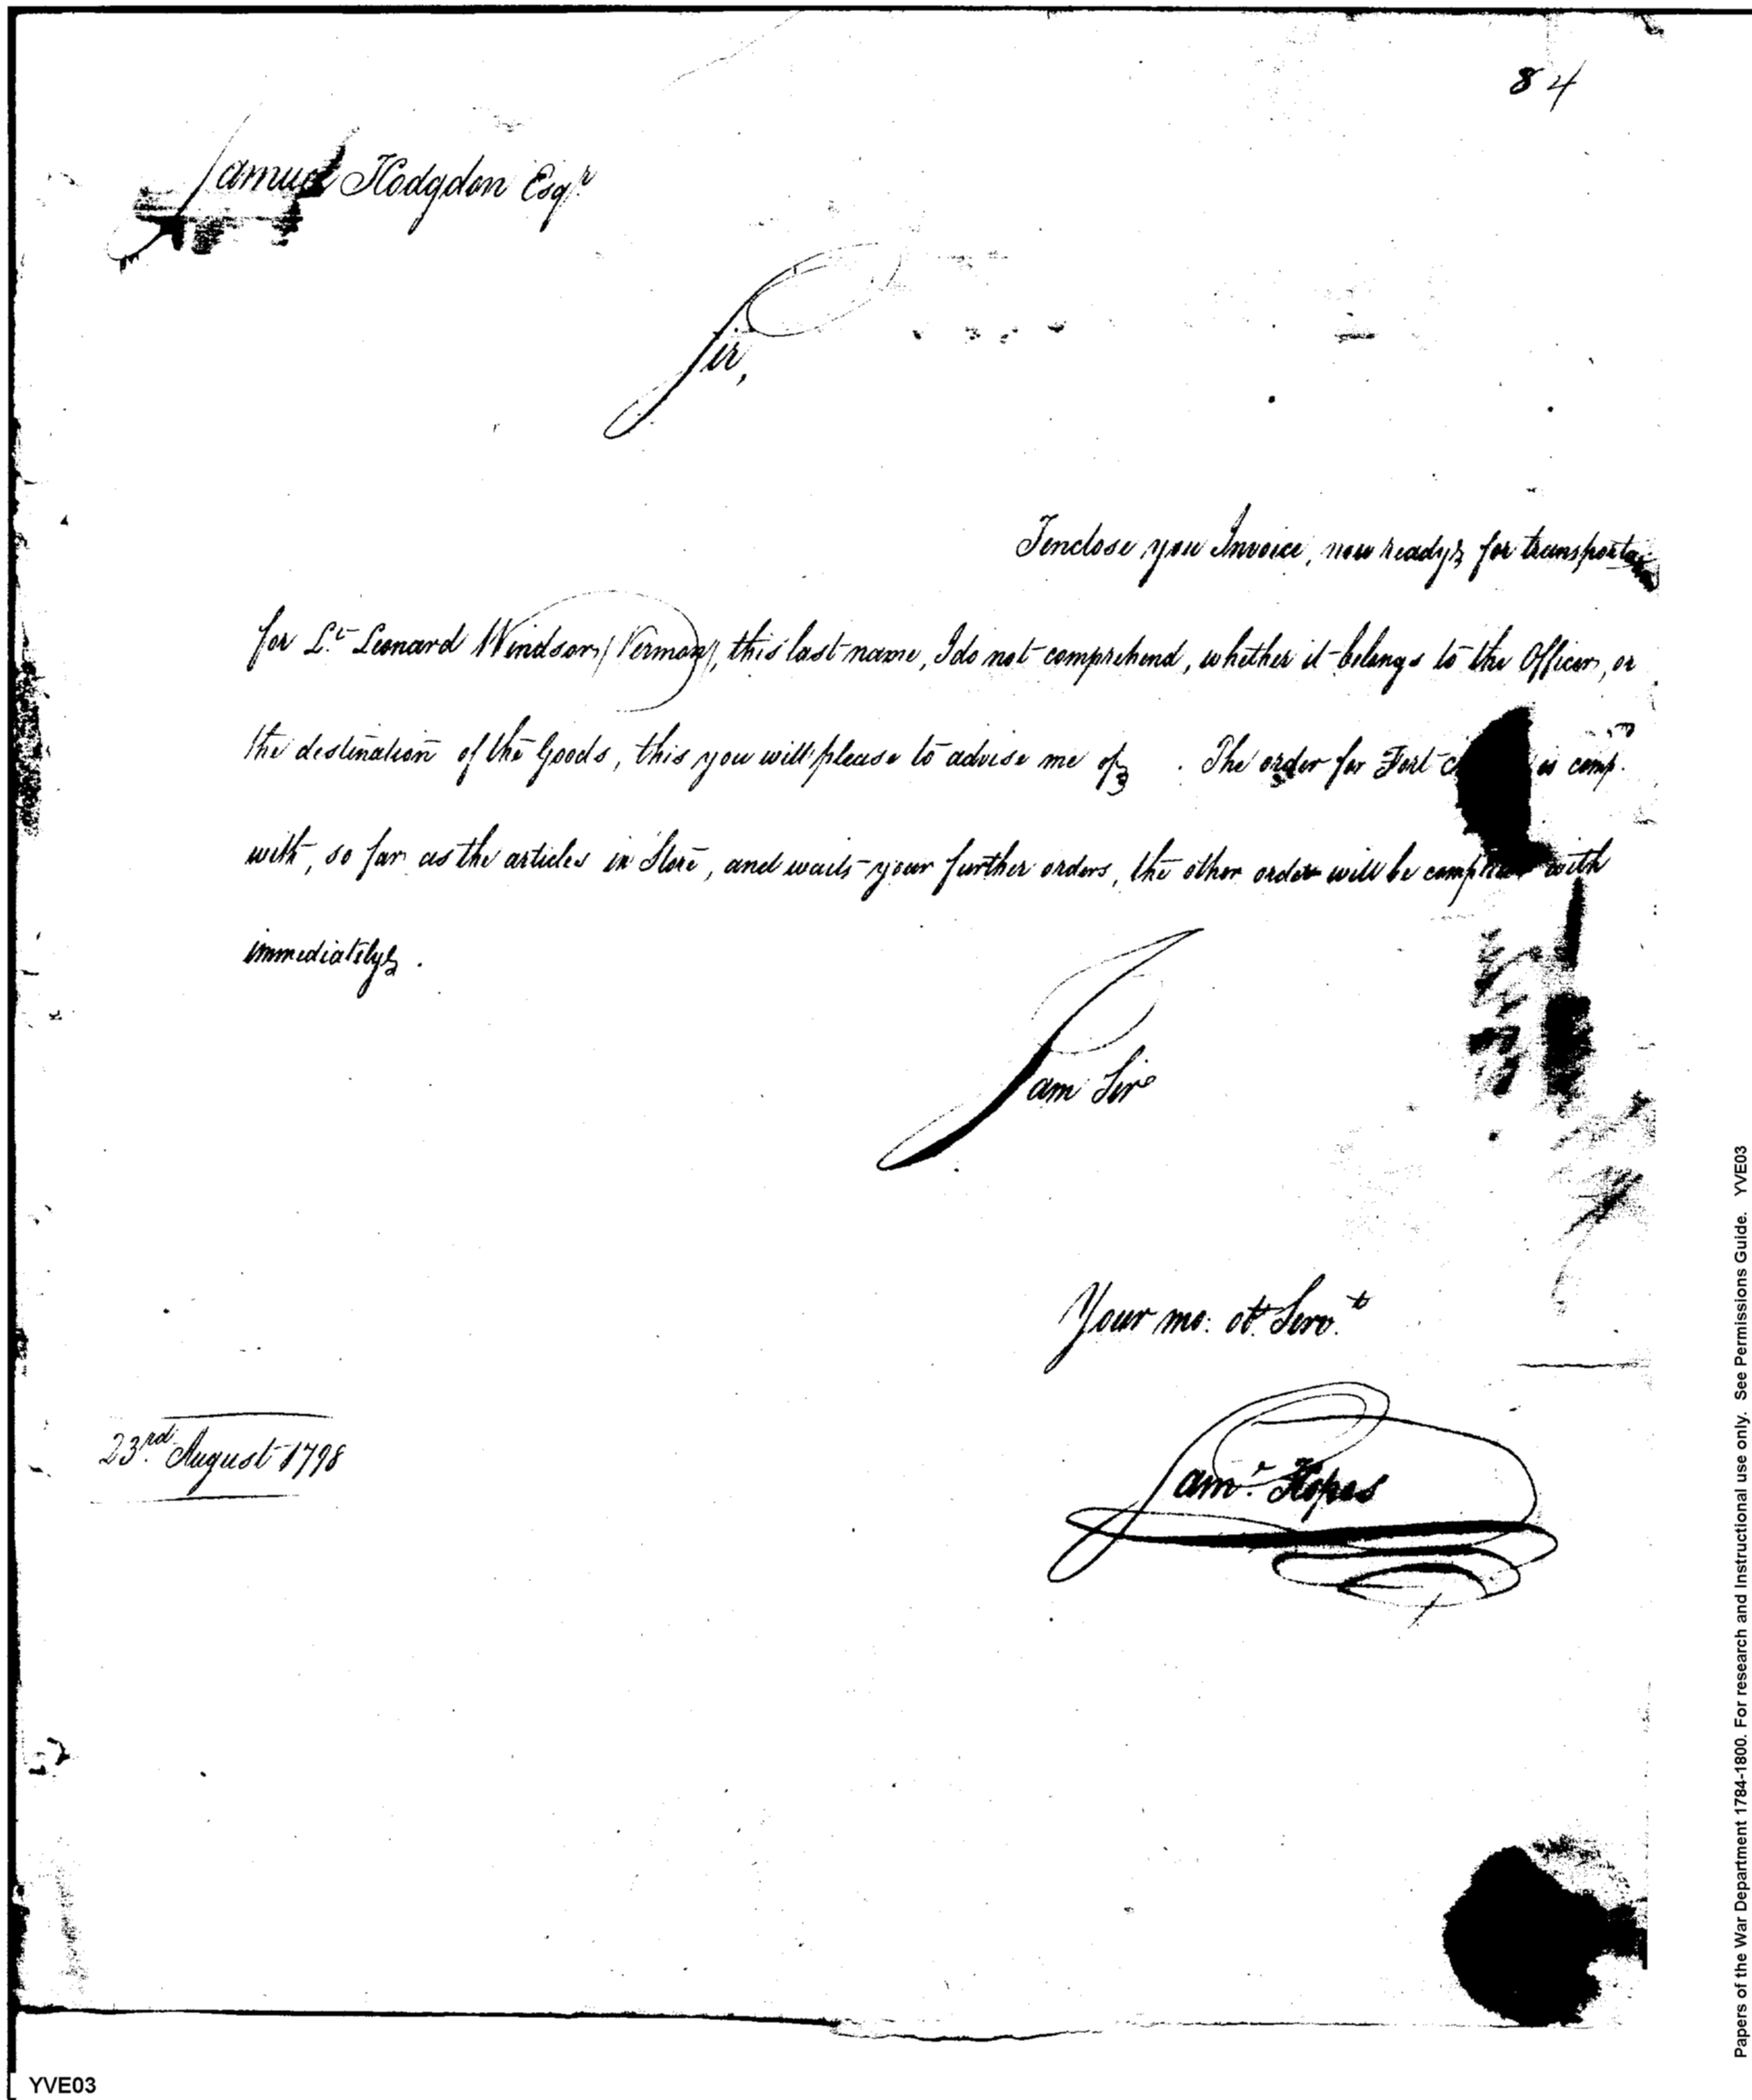 84
Samuel Hodgdon Esqr.
Sir,
I enclose you Invoice, now ready for
for Lt. Leonard Windsor (Vermont), this last name, I do not comprehend, whether it belongs to the Officer, or
the destination of the Goods, this you will please to advise me of. The order for Fort is comp.
with, so far as the articles in Store, and waits your further orders, the other order will be with
immediately.
I am Sir
Your mo: ob. Servt.
23rd. August 1798
Saml. Hopes
YVE03
Papers of the War Department 1784-1800. For research and Instructional use only. See Permissions Guide. YVE03